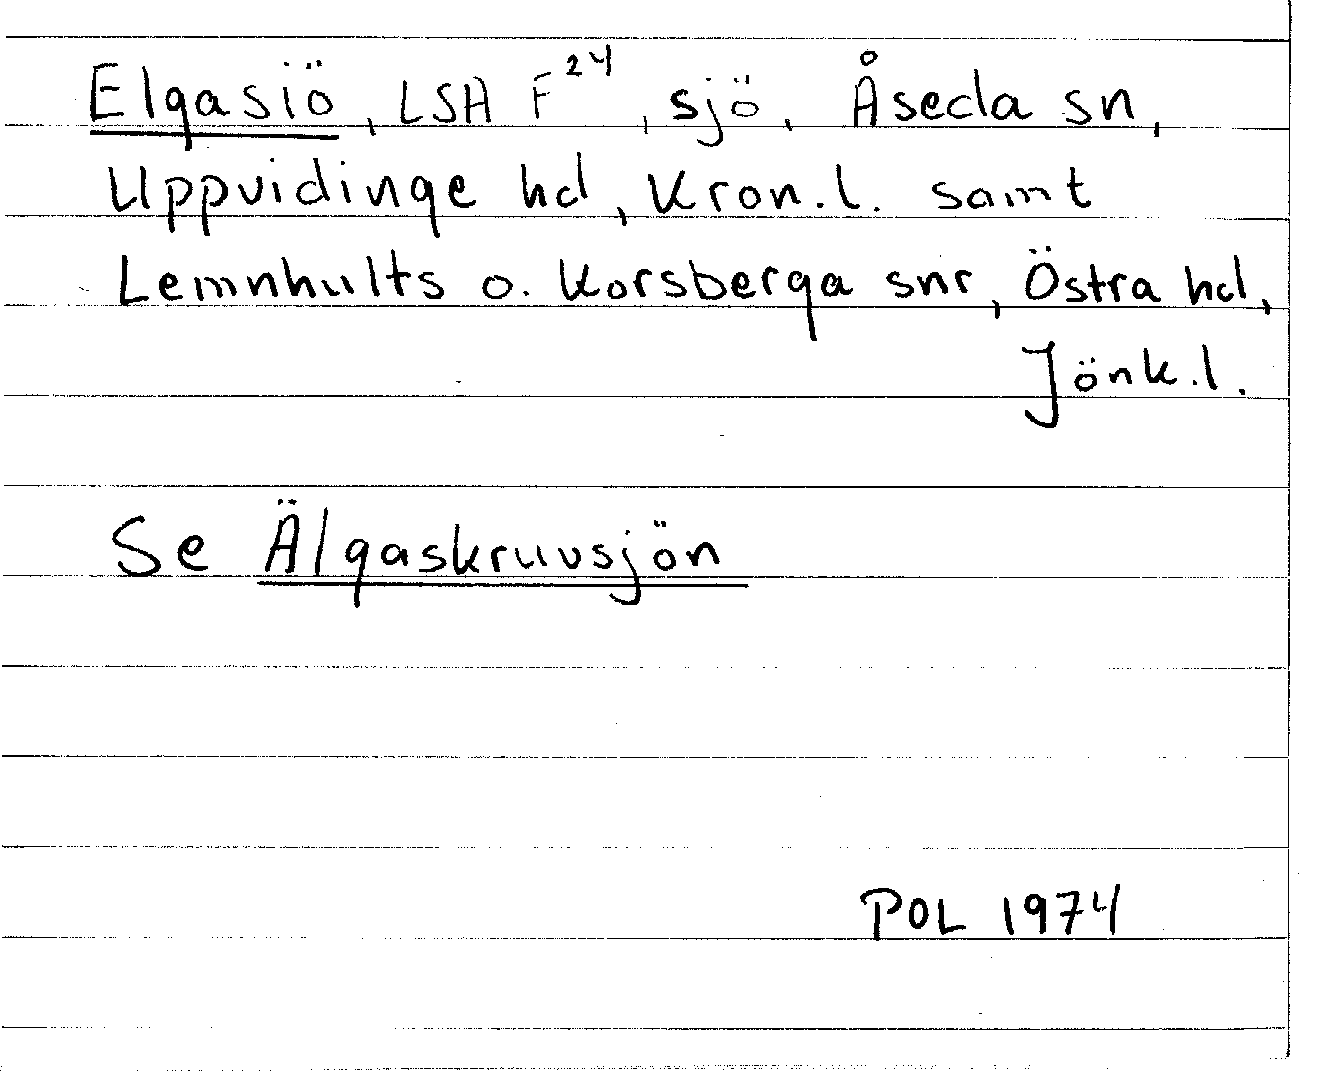 Elgasiö, LSA F²⁴, sjö, Åseda sn,
Uppvidinge hd, Kron.l. samt
Lemnhults o. Korsberga snr, Östra hd,
Jönk.l.
Se Älgaskruvsjön
POL 1974